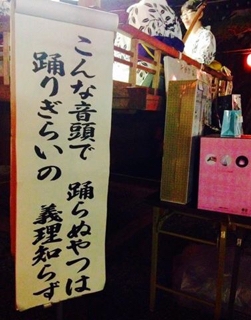 こんな音頭で 踊らぬやつは
踊りぎらいの 義理知らず